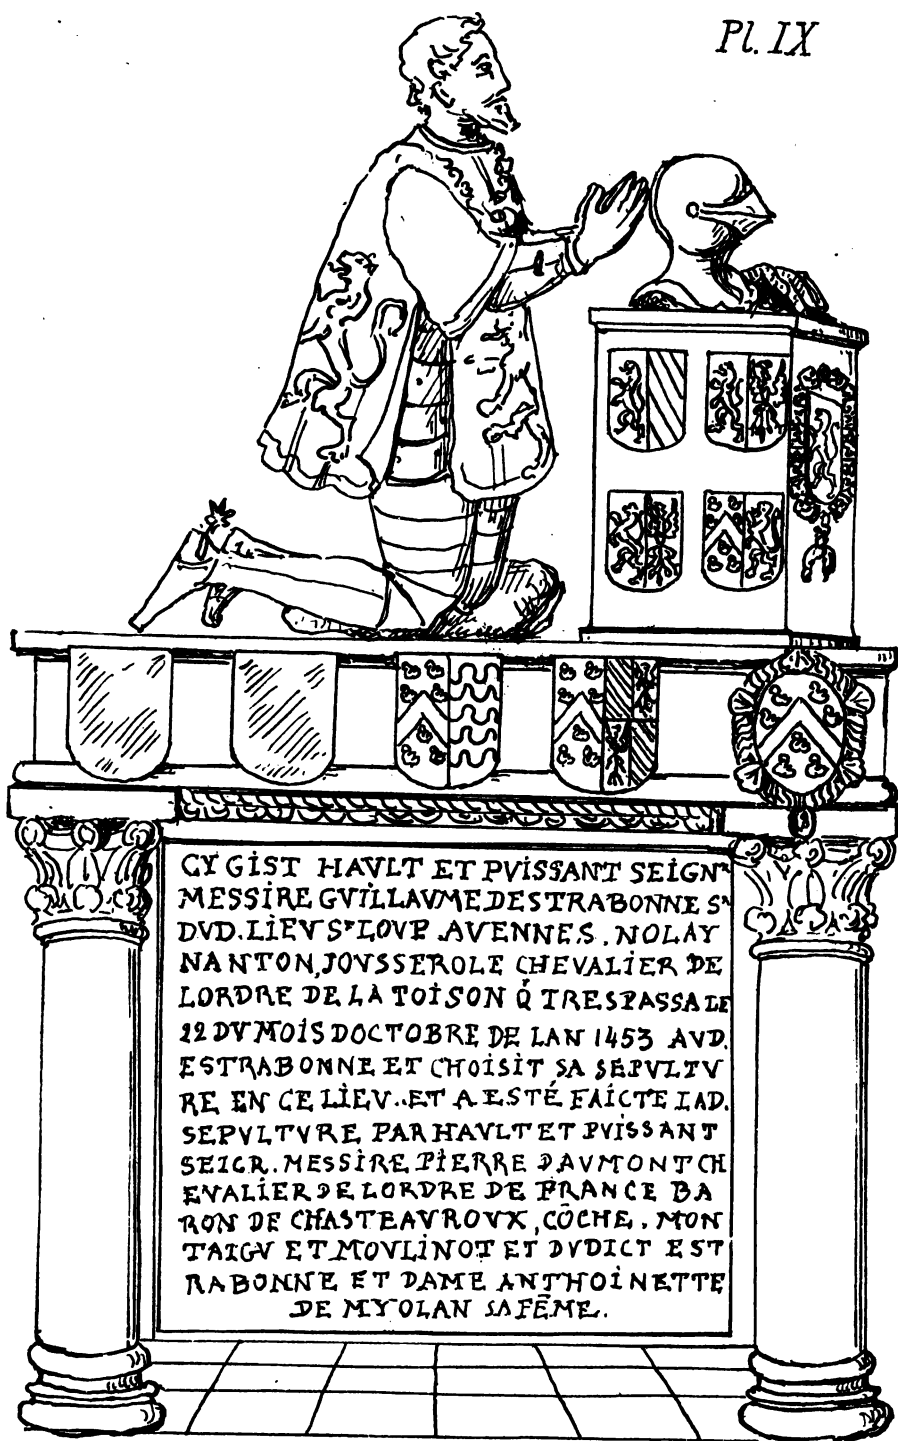 Pl. IX
CY GİST HAVLT ET PVISSANT SEİGNR
MESSİRE GVİLLAVME DESTRABONNE SR
DVD. LİEV ST LOVP. AVENNES. NOLAY
NANTON, JOVSSEROLE CHEVALİER DE
LORDRE DE LA TOİSON Q̃ TRESPASSA LE
22 DV MOİS DOCTOBRE DE LAN 1453 AVD.
ESTRABONNE ET CHOİSİT SA SEPVLTV
RE EN CE LİEV.. ET A ESTÉ FAİCTE LAD.
SEPVLTVRE PAR HAVLT ET PVİSSANT
SEIGR. MESSİRE PİERRE DAVMONT CH
EVALİER DE LORDRE DE FRANCE BA
RON DE CHASTEAVROVX, CÕCHE. MON
TAIGV ET MOVLİNOT ET DVDICT EST
RABONNE ET DAME ANTHOİNETTE
DE MYOLAN SA FẼME.